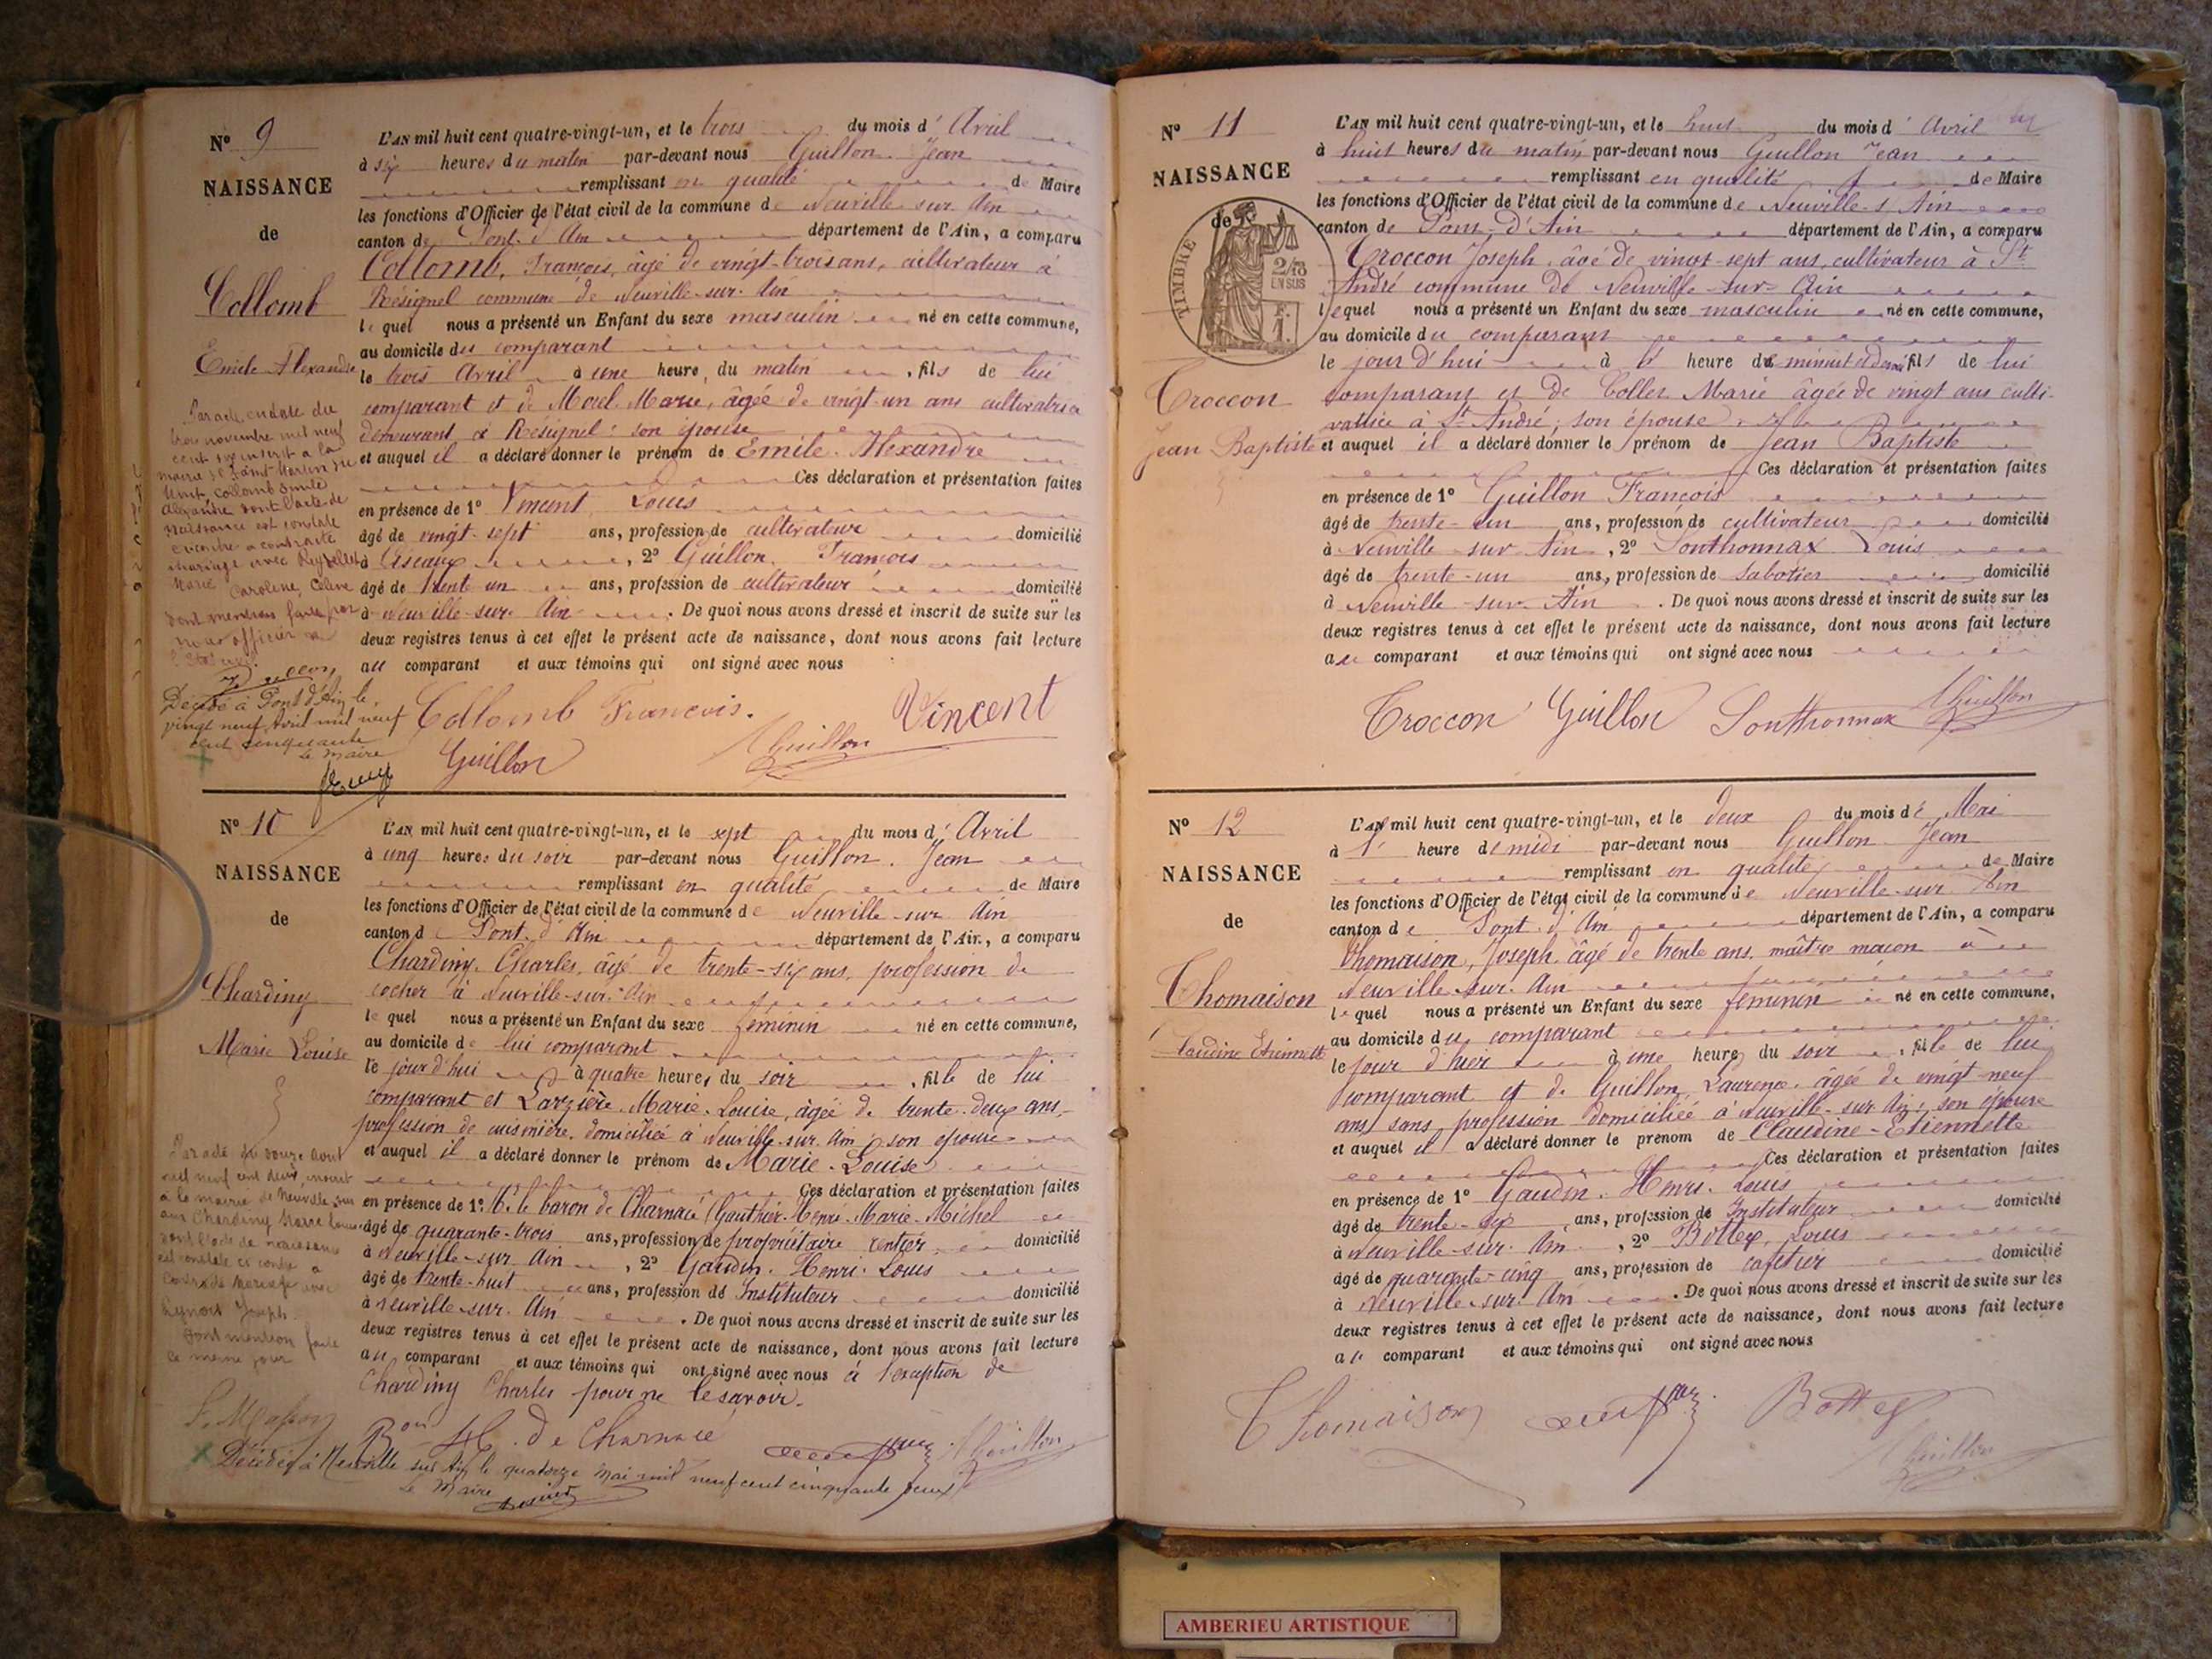 Nº 9
NAISSANCE
de
Collomb
Emile Alexandre
Par acte en date du
trois novembre mil neuf
cent inscrit a la
mairie de Saint Martin du
Mont Collomb Emile
Alexandre dont l'acte de
naissance est constaté
ci contre a contracté
mariage avec
Marie Caroline,
dont mention faite par
nous officier de
l'Etat civil
Décédé à Pont d'Ain le
vingt neuf Avril mil neuf
cent cinquante
Le Maire
L'AN mil huit cent quatre-vingt-un, et le trois du mois d' Avril
à six heures du matin par-devant nous Guillon Jean
remplissant en qualité de Maire
les fonctions d'Officier de l'état civil de la commune de Neuville sur Ain
canton de Pont d'Ain département de l'Ain, a comparu
Collomb, François, âgé de vingt-trois ans, cultivateur à
Résignel commune de Neuville-sur-Ain
lequel nous a présenté un Enfant du sexe masculin né en cette commune,
au domicile du comparant
le trois Avril à une heure du matin, fils de lui
comparant et de Morel Marie, âgée de vingt-un ans cultivatrice
demeurant à Resignel : son épouse
et auquel il a déclaré donner le prénom de Emile Alexandre
Ces déclaration et présentation faites
en présence de 1º Vincent Louis
âgé de vingt-sept ans, profession de cultivateur domicilié
à , 2º Guillon François
âgé de trente un ans, profession de cultivateur domicilié
à Neuville-sur-Ain. De quoi nous avons dressé et inscrit de suite sur les
deux registres tenus à cet effet le présent acte de naissance, dont nous avons fait lecture
au comparant et aux témoins qui ont signé avec nous
Collomb François. Vincent
Guillon JGuillon
Nº 10
NAISSANCE
de
Chardiny
Marie Louise
Par acte du douze Aout
mil neuf cent deux, inscrit
à la mairie de Neuville sur
Ain Chardiny Marie Louise
dont l'acte de naissance
est constaté ci contre a
contracté mariage avec
Joseph.
Dont mention faite
ce meme jour
L'AN mil huit cent quatre-vingt-un, et le sept du mois d' Avril
à cinq heures du soir par-devant nous Guillon Jean
remplissant en qualité de Maire
les fonctions d'Officier de l'état civil de la commune de Neuville-sur Ain
canton de Pont d'Ain département de l'Ain, a comparu
Chardiny Charles, âgé de trente-six ans, profession de
cocher à Neuville-sur-Ain
lequel nous a présenté un Enfant du sexe féminin né en cette commune,
au domicile de lui comparant
le jourd'hui à quatre heures du soir, fille de lui
comparant et Larzière Marie-Louise, âgée de trente-deux ans,
profession de cuisinière, domiciliée à Neuville-sur-Ain ; son épouse
et auquel il a déclaré donner le prénom de Marie-Louise
Ces déclaration et présentation faites
en présence de 1º Mr. le baron de Charnacé (Gauthier-Henri-Marie-Michel
âgé de quarante-trois ans, profession de propriétaire rentier domicilié
à Neuville-sur-Ain, 2º Gaudin Henri Louis
âgé de trente-huit ans, profession de Instituteur domicilié
à Neuville-sur-Ain. De quoi nous avons dressé et inscrit de suite sur les
deux registres tenus à cet effet le présent acte de naissance, dont nous avons fait lecture
au comparant et aux témoins qui ont signé avec nous à l'exception de
Chardiny Charles pour ne le savoir.
Bon H. de Charnacé JGuillon
Décédée à Neuville sur Ain le quatorze Mai mil neuf cent cinquante deux
Le Maire
Nº 11
NAISSANCE
de
TIMBRE
2/10
EN SUS
F.
1.
Troccon
Jean Baptiste
L'AN mil huit cent quatre-vingt-un, et le huit du mois d' Avril
à huit heures du matin par-devant nous Guillon Jean
remplissant en qualité de Maire
les fonctions d'Officier de l'état civil de la commune de Neuville-s Ain
canton de Pont-d'Ain département de l'Ain, a comparu
Troccon Joseph, âgé de vingt-sept ans, cultivateur à St
André commune de Neuville-sur-Ain
lequel nous a présenté un Enfant du sexe masculin né en cette commune,
au domicile du comparant
le jour d'hui à heure de minuit et demi, fils de lui
comparant et de Collet Marie âgée de vingt ans culti-
vatrice à St André, son épouse
et auquel il a déclaré donner le prénom de Jean Baptiste
Ces déclaration et présentation faites
en présence de 1º Guillon François
âgé de trente-un ans, profession de cultivateur domicilié
à Neuville-sur-Ain, 2º Sonthonnax Louis
âgé de trente-un ans, profession de sabotier domicilié
à Neuville-sur-Ain. De quoi nous avons dressé et inscrit de suite sur les
deux registres tenus à cet effet le présent acte de naissance, dont nous avons fait lecture
au comparant et aux témoins qui ont signé avec nous
Troccon Guillon Sonthonnax JGuillon
Nº 12
NAISSANCE
de
Thomaison
Claudine Etiennette
L'AN mil huit cent quatre-vingt-un, et le deux du mois de Mai
à 1 heure de midi par-devant nous Guillon Jean
remplissant en qualité de Maire
les fonctions d'Officier de l'état civil de la commune de Neuville-sur Ain
canton de Pont d'Ain département de l'Ain, a comparu
Thomaison, Joseph âgé de trente ans, maître maçon à
Neuville-sur-Ain
lequel nous a présenté un Enfant du sexe féminin né en cette commune,
au domicile du comparant
le jour d'hier à une heure du soir, fille de lui
comparant et de Guillon Laurence, âgée de vingt-neuf
ans, sans profession domiciliée à Neuville-sur Ain ; son épouse
et auquel il a déclaré donner le prénom de Claudine-Etiennette
Ces déclaration et présentation faites
en présence de 1º Gaudin Henri Louis
âgé de trente- ans, profession de Instituteur domicilié
à Neuville-sur-Ain, 2º Bottex Louis
âgé de quarante-cinq ans, profession de cafetier domicilié
à Neuville-sur-Ain. De quoi nous avons dressé et inscrit de suite sur les
deux registres tenus à cet effet le présent acte de naissance, dont nous avons fait lecture
au comparant et aux témoins qui ont signé avec nous
Thomaison Bottex
JGuillon
AMBERIEU ARTISTIQUE